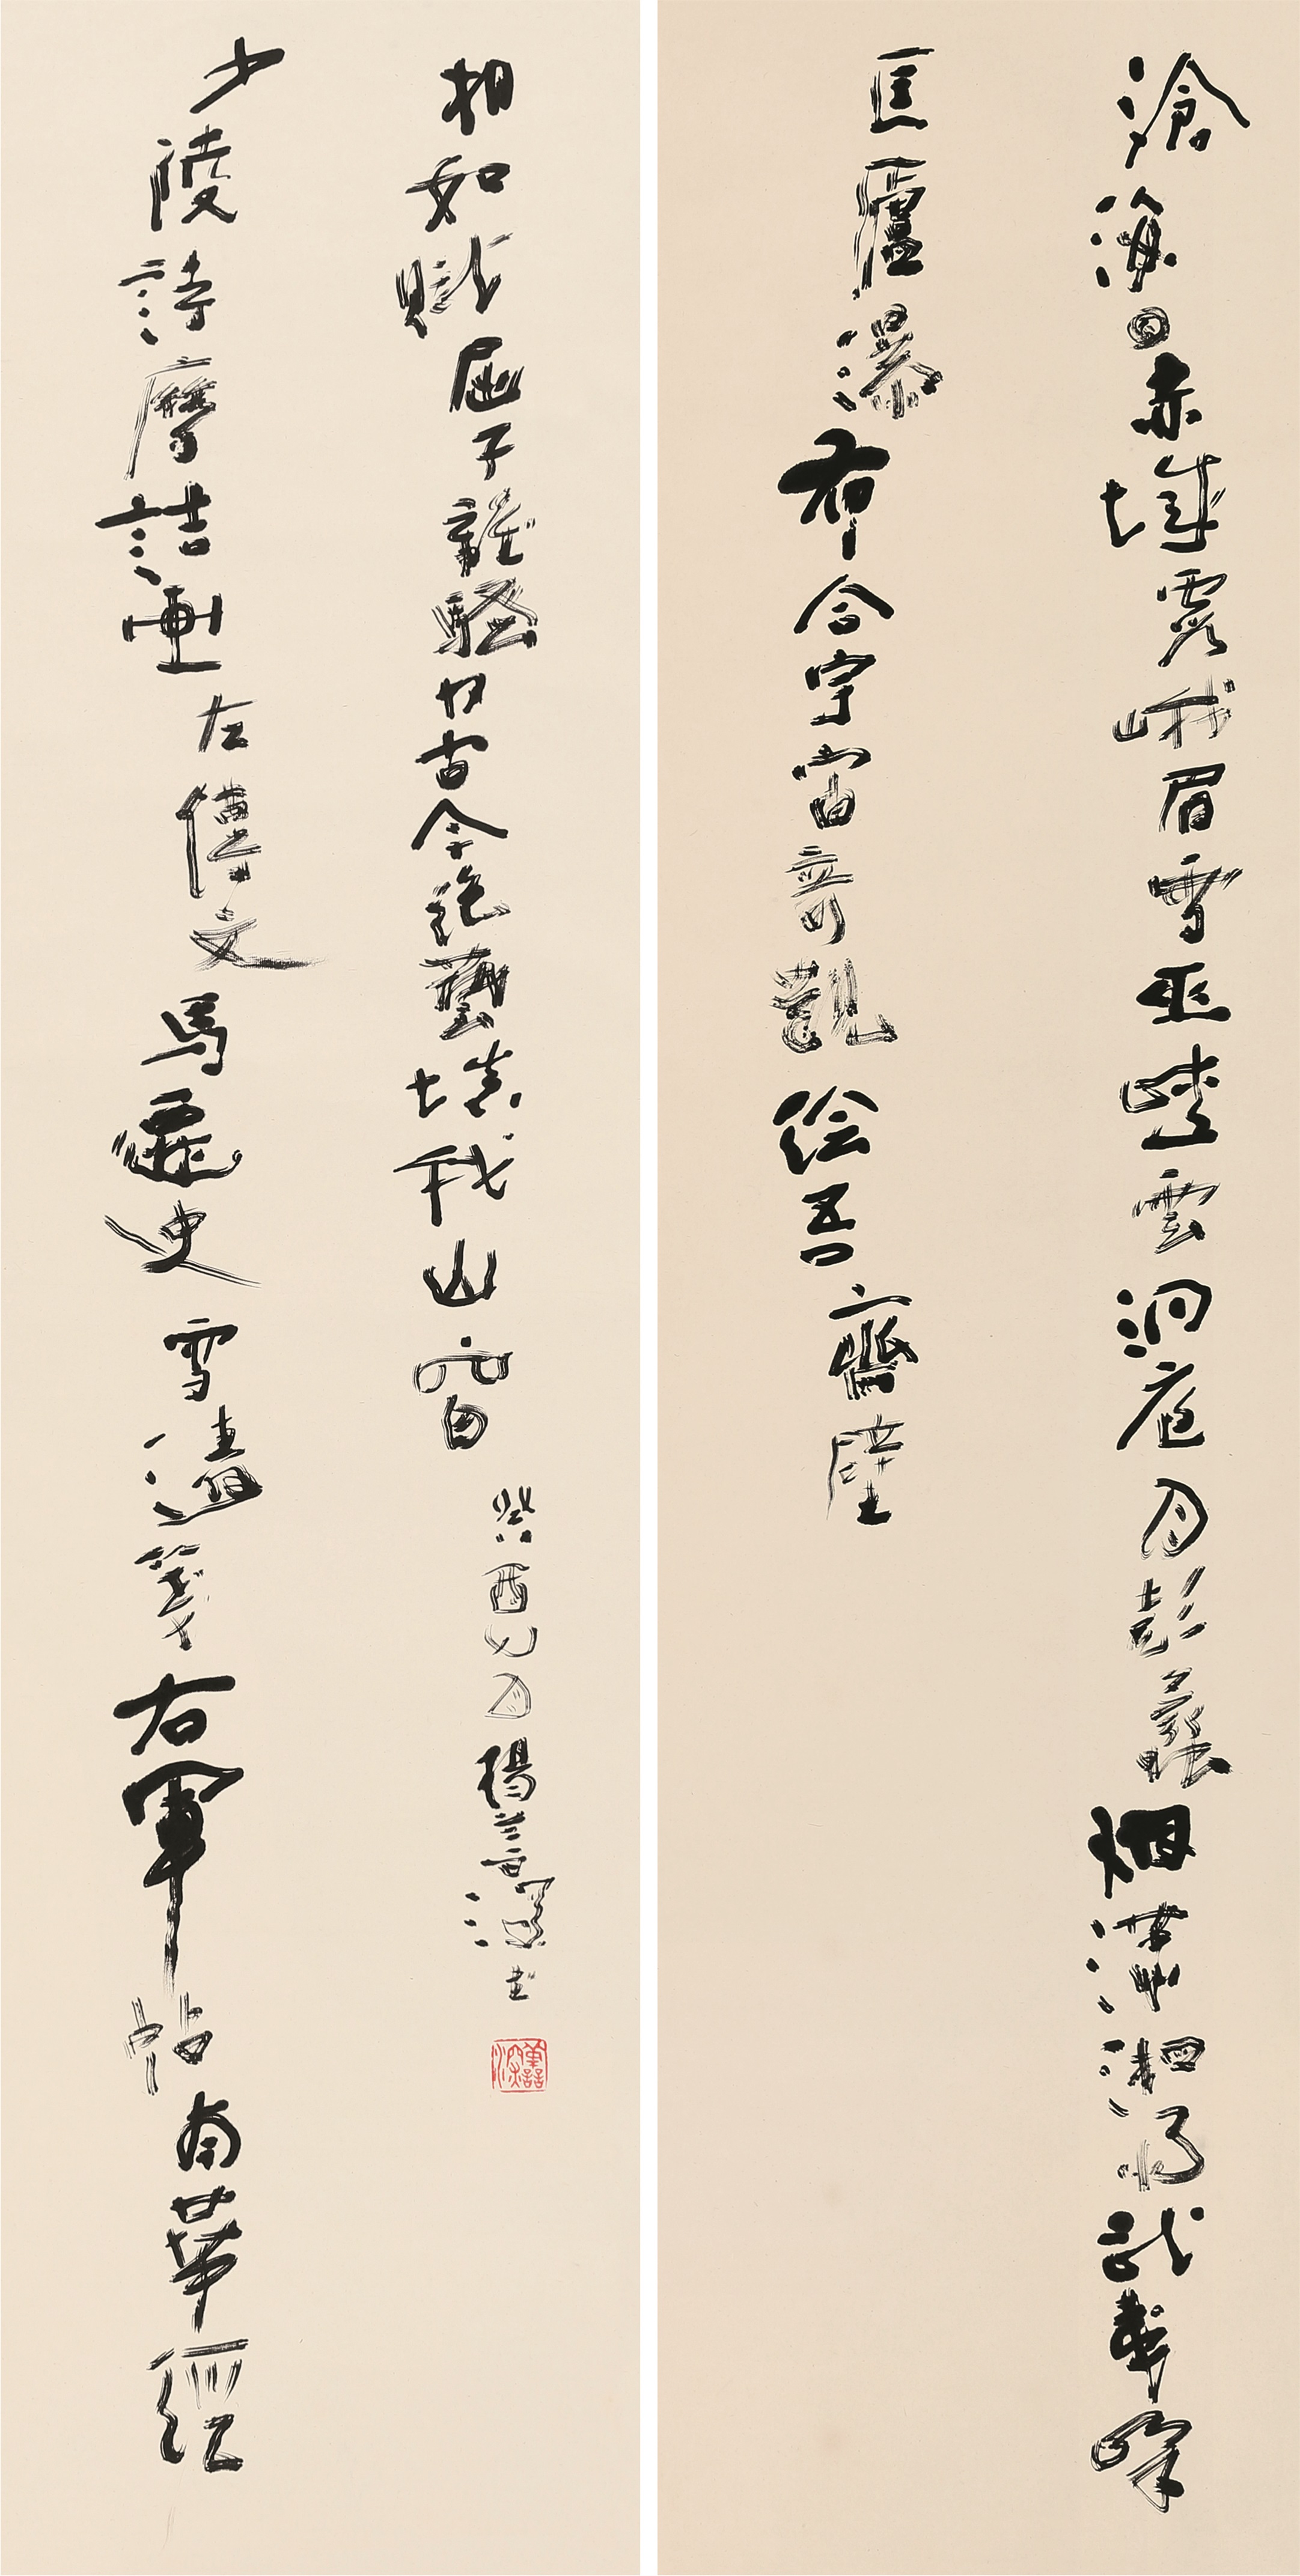 滄海日赤城霞峨眉雪巫峽雲洞庭月彭蠡烟瀟湘雨武彝峰
匡廬瀑布合宇宙奇觀绘吾齋壁
少陵詩摩詰画左傳文馬遷史雪濤箋右軍帖南華經
相如賦屈子離騷收古今絕藝填我山窗
癸酉七月楊善深書
善深